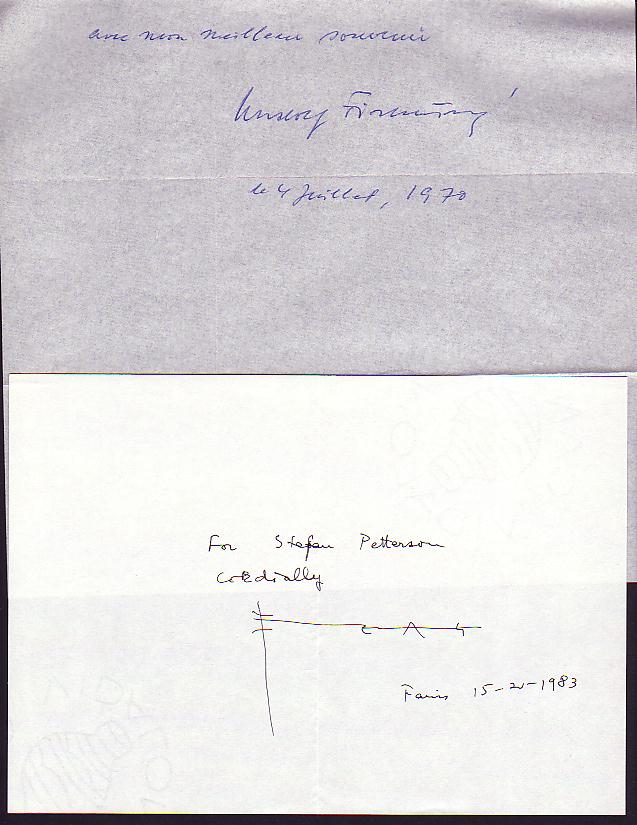 avec mon meilleur souvenir
le 4 Juillet, 1970
For Stefan Petterson
Cordially
Paris 15-2-1983